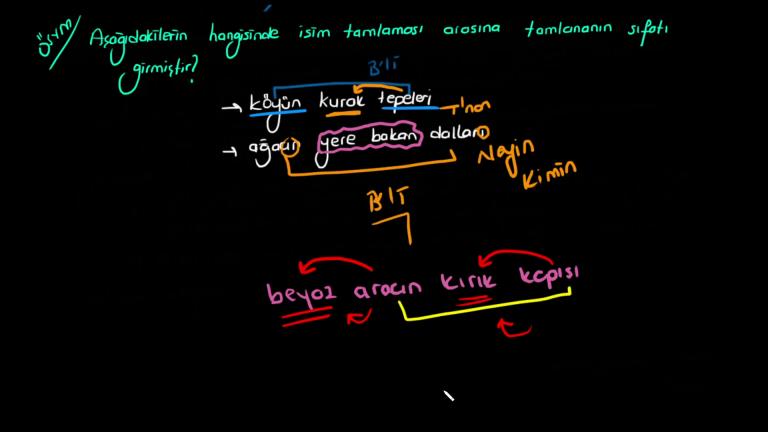 ÖSYM/ Aşağıdakilerin hangisinde isim tamlaması arasına tamlananın sıfatı
girmiştir?
BİT
→ köyün kurak tepeleri T'nan
→ ağacın yere bakan dalları Neyin
Kimin
BİT
beyaz aracın kırık kapısı